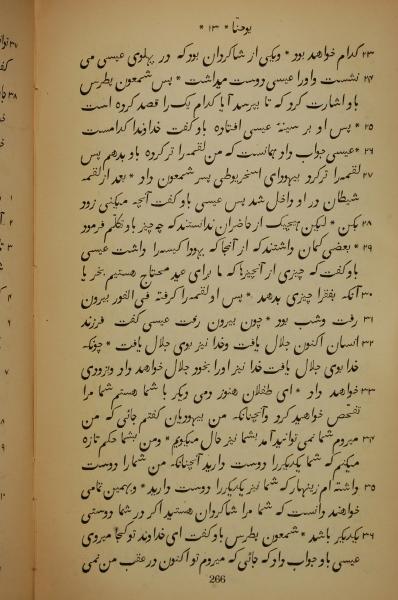 یوحنّا * ۱۳ *
۲۳ کدام خواهد بود * ویکی از شاکردان بود که در پهلوی عیسی می
۲۴ نشست واورا عیسی دوست میداشت * پس شمعون پطرس
باو اشارت کرد که تا بپرسد آیا کدام یک را قصد کرده است
۲۵ * پس او بر سینهٔ عیسی افتاده باو کفت خداوندا کدامست
۲۶ * عیسی جواب داد همانست که من لقمه را تر کرده باو بدهم پس
۲۷ لقمه را تر کرد بیهودای اسخریوطی پسر شمعون داد * بعد از لقمه
شیطان در او داخل شد پس عیسی باو کفت آنچه میکنی زود
۲۸ بکن * لیکن هیچیک از حاضران ندانستند که چه چیز باو تکلم فرمود
۲۹ * بعضی کمان داشتند که از آنجا که یهودا کیسه را داشت عیسی
باو کفت که چیزی از آنچیزها که ما برای عید محتاج هستیم بخر یا
۳۰ آنکه بفقرا چیزی بدهد * پس او لقمه را کرفته فی الفور بیرون
۳۱ رفت وشب بود * چون بیرون رفت عیسی کفت فرزند
۳۲ انسان اکنون جلال یافت وخدا نیز بوی جلال یافت * چونکه
خدا بوی جلال یافت خدا نیز اورا بخود جلال خواهد داد وبزودی
۳۳ خواهد داد * ای طفلان هنوز دمی دیکر با شما هستم شما مرا
تفحّص خواهید کرد وآنچنانکه من بیهودیان کفتم جائی که من
۳۴ میروم شما نمی توانید آمد بشما نیز حال میکویم * ومن بشما حکم تازه
میکنم که شما یکدیکررا دوست دارید آنچنانکه من شمارا دوست
۳۵ داشته ام زینهار که شما نیز یکدیکررا دوست دارید * وبهمین تمامی
خواهند دانست که شما مرا شاکردان هستید اکر در شما دوستی
۳۶ یکدیکر باشد * شمعون پطرس باو کفت ای خداوند تو کجا میروی
عیسی باو جواب داد که جائی که میروم تو اکنون در عقب من نمی
266